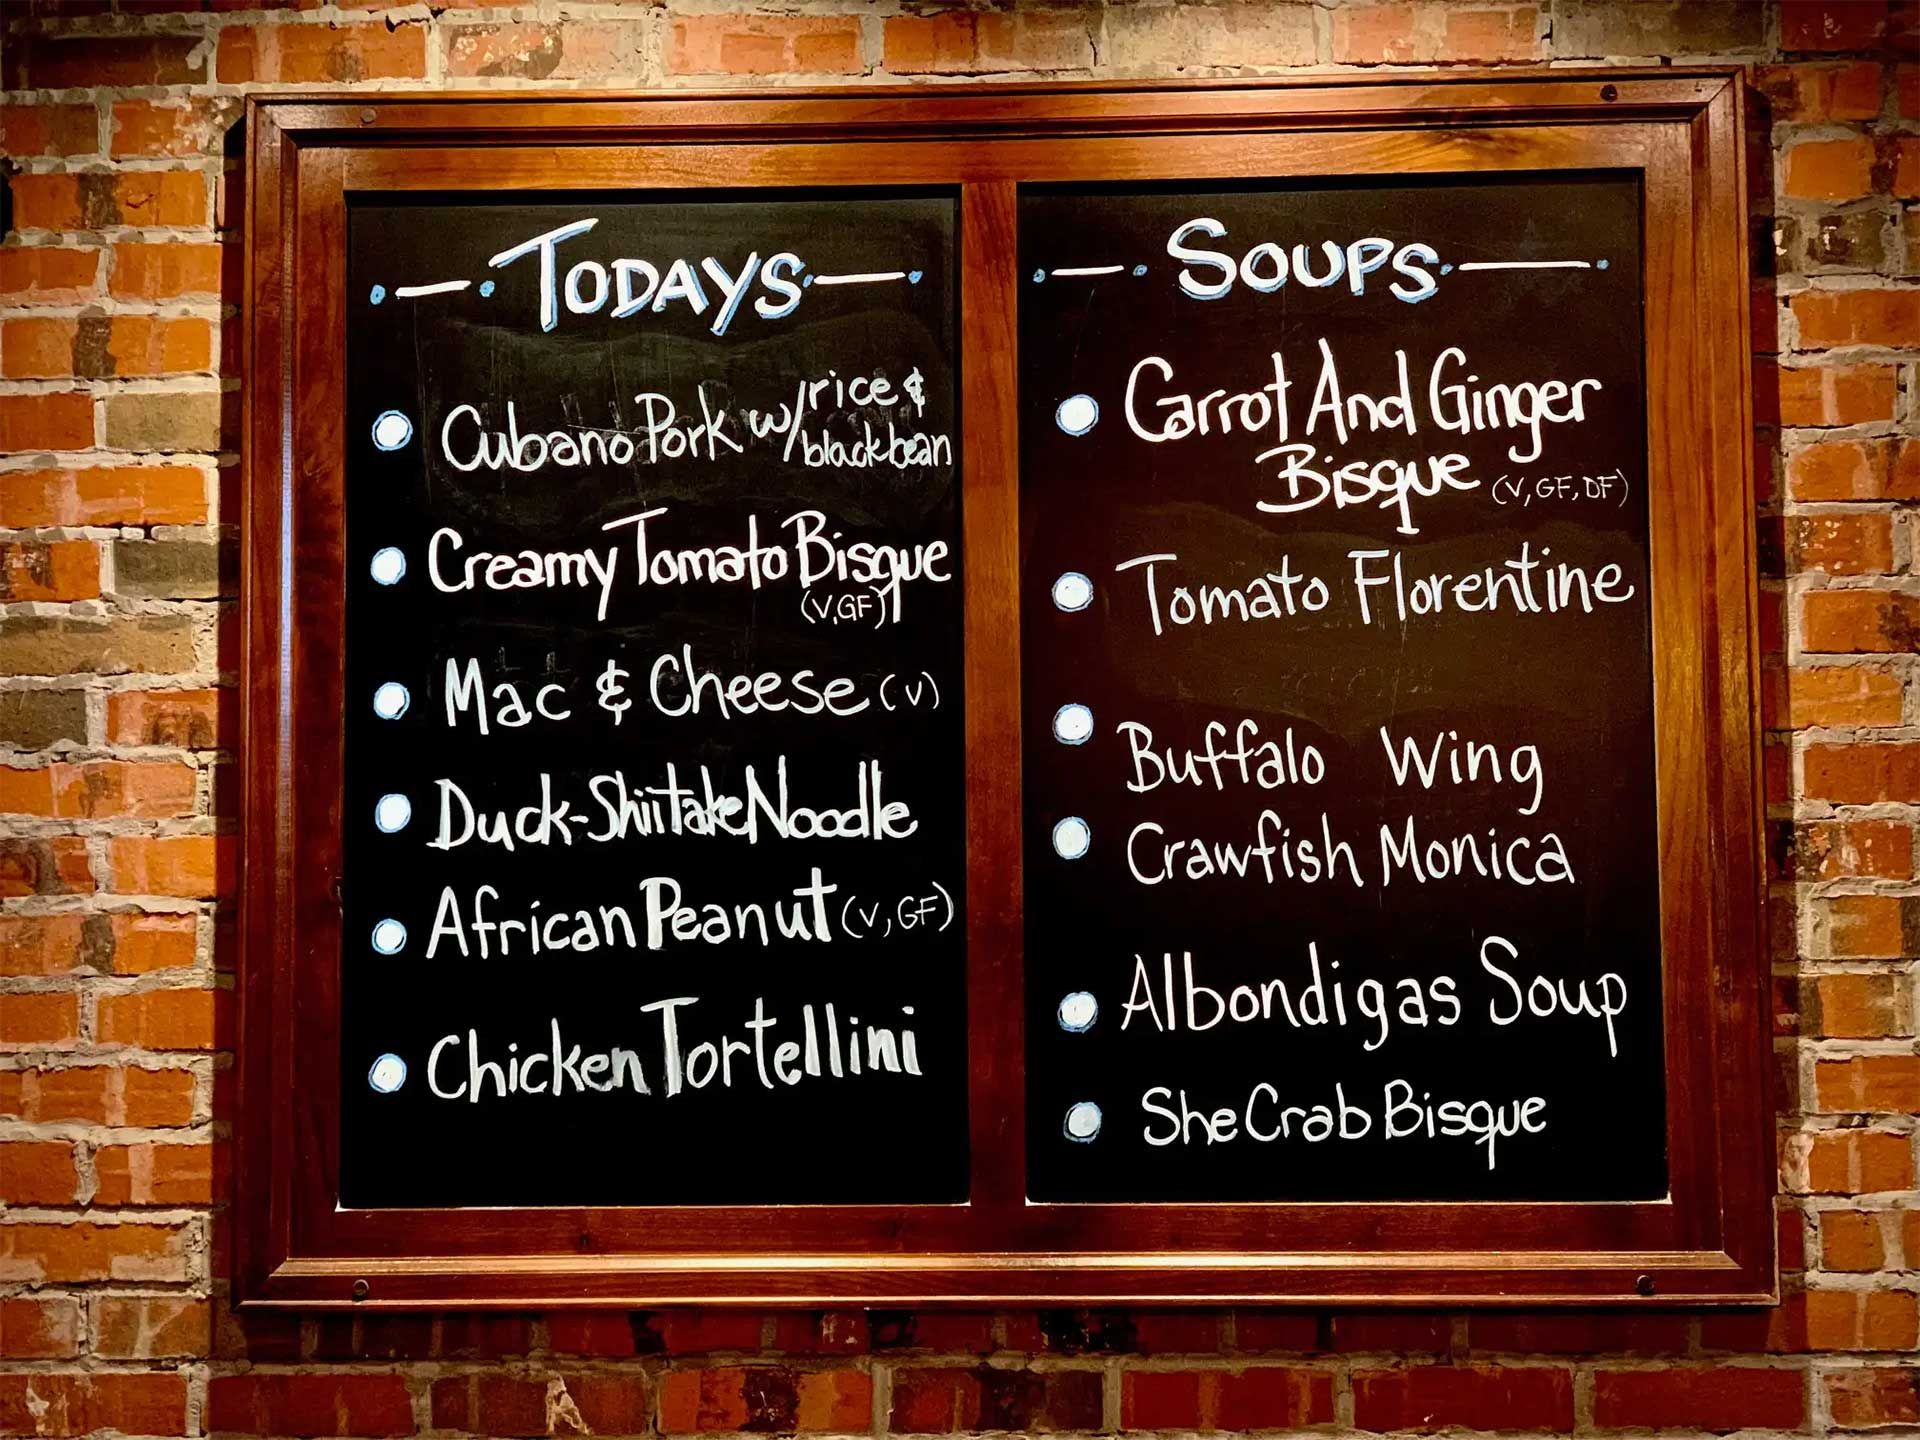 TODAYS
Cubano Pork w/ rice &
black bean
Creamy Tomato Bisque
(V,GF)
Mac & Cheese (V)
Duck-Shiitake Noodle
African Peanut (V, GF)
Chicken Tortellini
SOUPS
Carrot And Ginger
Bisque (V, GF, DF)
Tomato Florentine
Buffalo Wing
Crawfish Monica
Albondigas Soup
She Crab Bisque